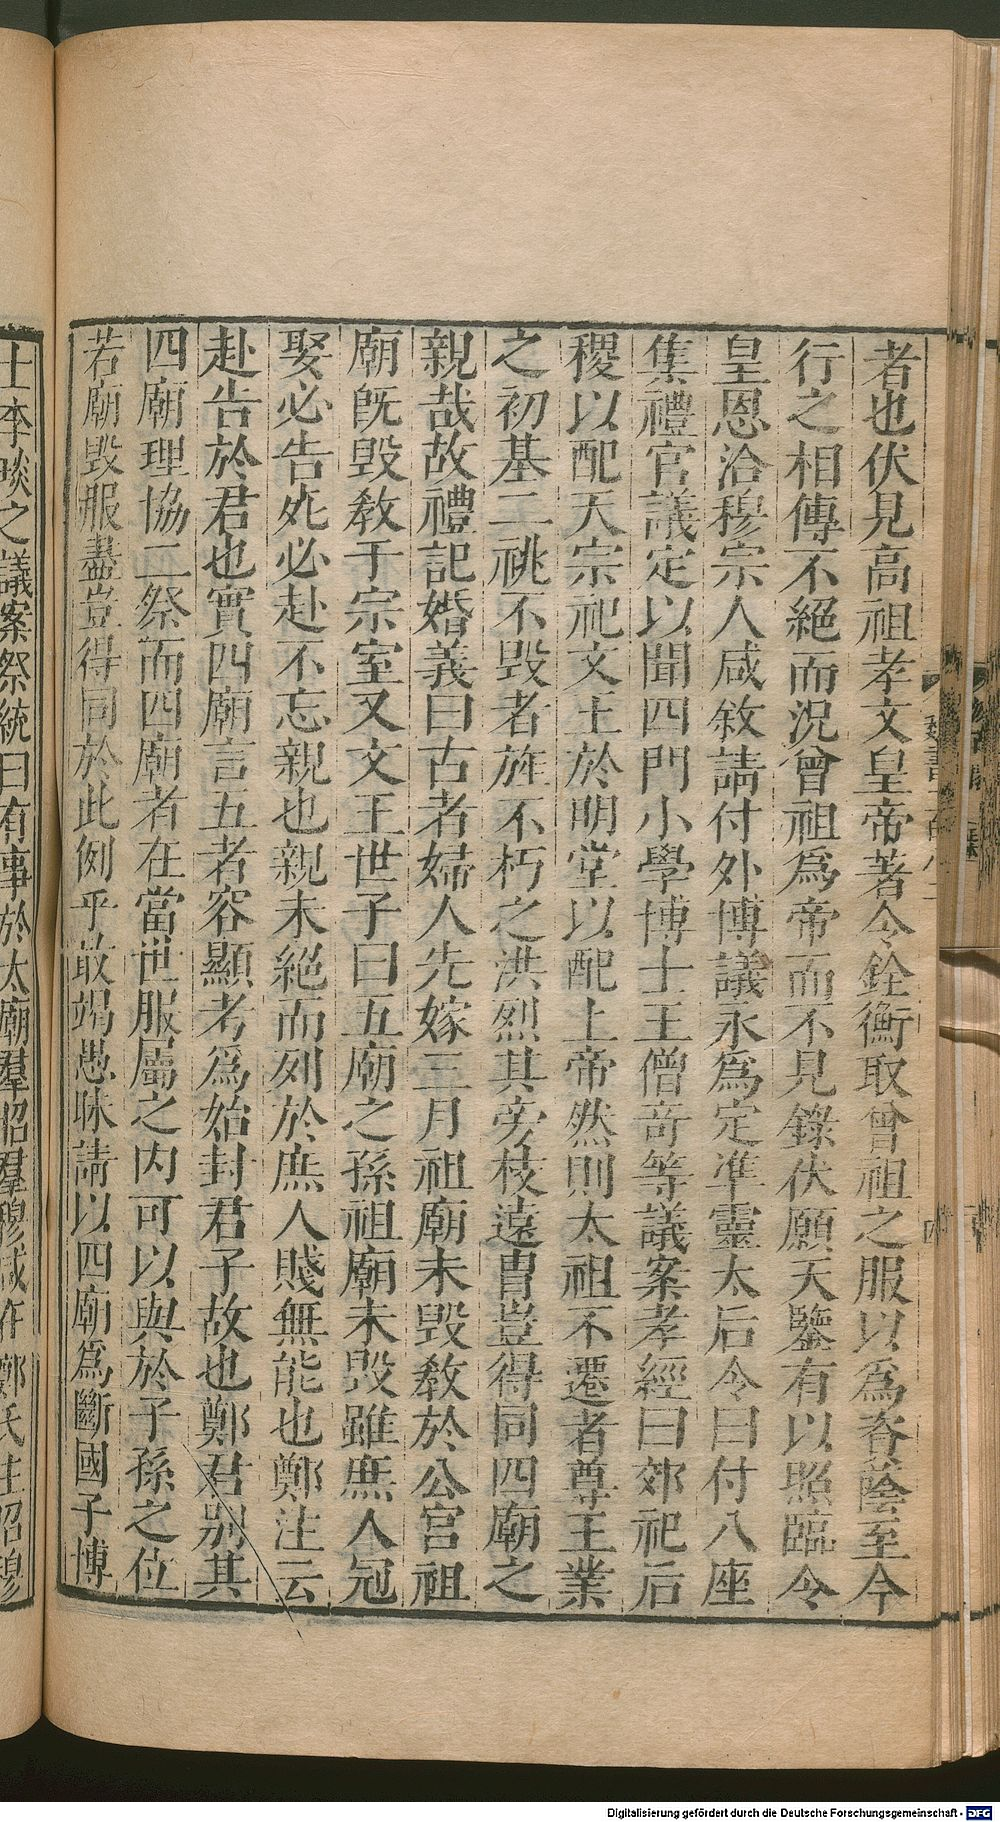 者也伏見高祖孝文皇帝著令銓衡取曾祖之服以爲旾蔭至今
行之相傳不絕而況曾祖爲帝而不見錄伏願天鑒有以照臨令
皇恩洽穆宗人咸敘請付外博議永爲定準靈太后令曰付八座
集禮官議定以聞四門小學博士王僧奇等議案孝經曰郊祀后
稷以配天宗祀文王於明堂以配上帝然則太祖不遷者尊王業
之初基二祧不毀者旌不朽之洪烈其旁枝遠胄豈得同四廟之
親哉故禮記婚義曰古者婦人先嫁三月祖廟未毀敎於公宮祖
廟旣毀敎于宗室又文王世子曰五廟之孫祖廟未毀雖庶人冠
娶必告死必赴不忘親也親未絕而列於庶人賤無能也鄭注云
赴告於君也實四廟言五者容顯考爲始封君子故也鄭君別其
四廟理協二祭而四廟者在當世服屬之內可以與於子孫之位
若廟毀服盡豈得同於此例乎敢竭愚昧請以四廟爲斷國子博
士李琰之議案祭統曰有事於太廟羣昭羣穆咸在鄭氏注昭穆
Digitalisierung gefördert durch die Deutsche Forschungsgemeinschaft - DFG